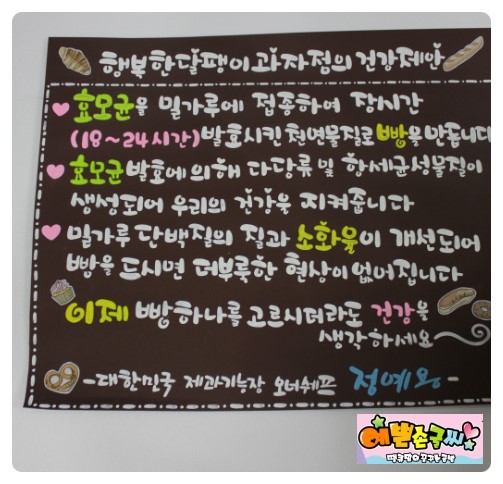 행복한달팽이과자점의 건강제안
효모균을 밀가루에 접종하여 장시간
(18~24시간)발효시킨 천연물질로 빵을 만듭니다
효모균 발효에 의해 다당류 및 항세균성물질이
생성되어 우리의 건강을 지켜줍니다
밀가루 단백질의 질과 소화율이 개선되어
빵을 드시면 더부룩한 현상이 없어집니다
이제 빵하나를 고르시더라도 건강을
생각하세요~
-대한민국 제과기능장 오너쉐프 정예용-
예쁜손글씨